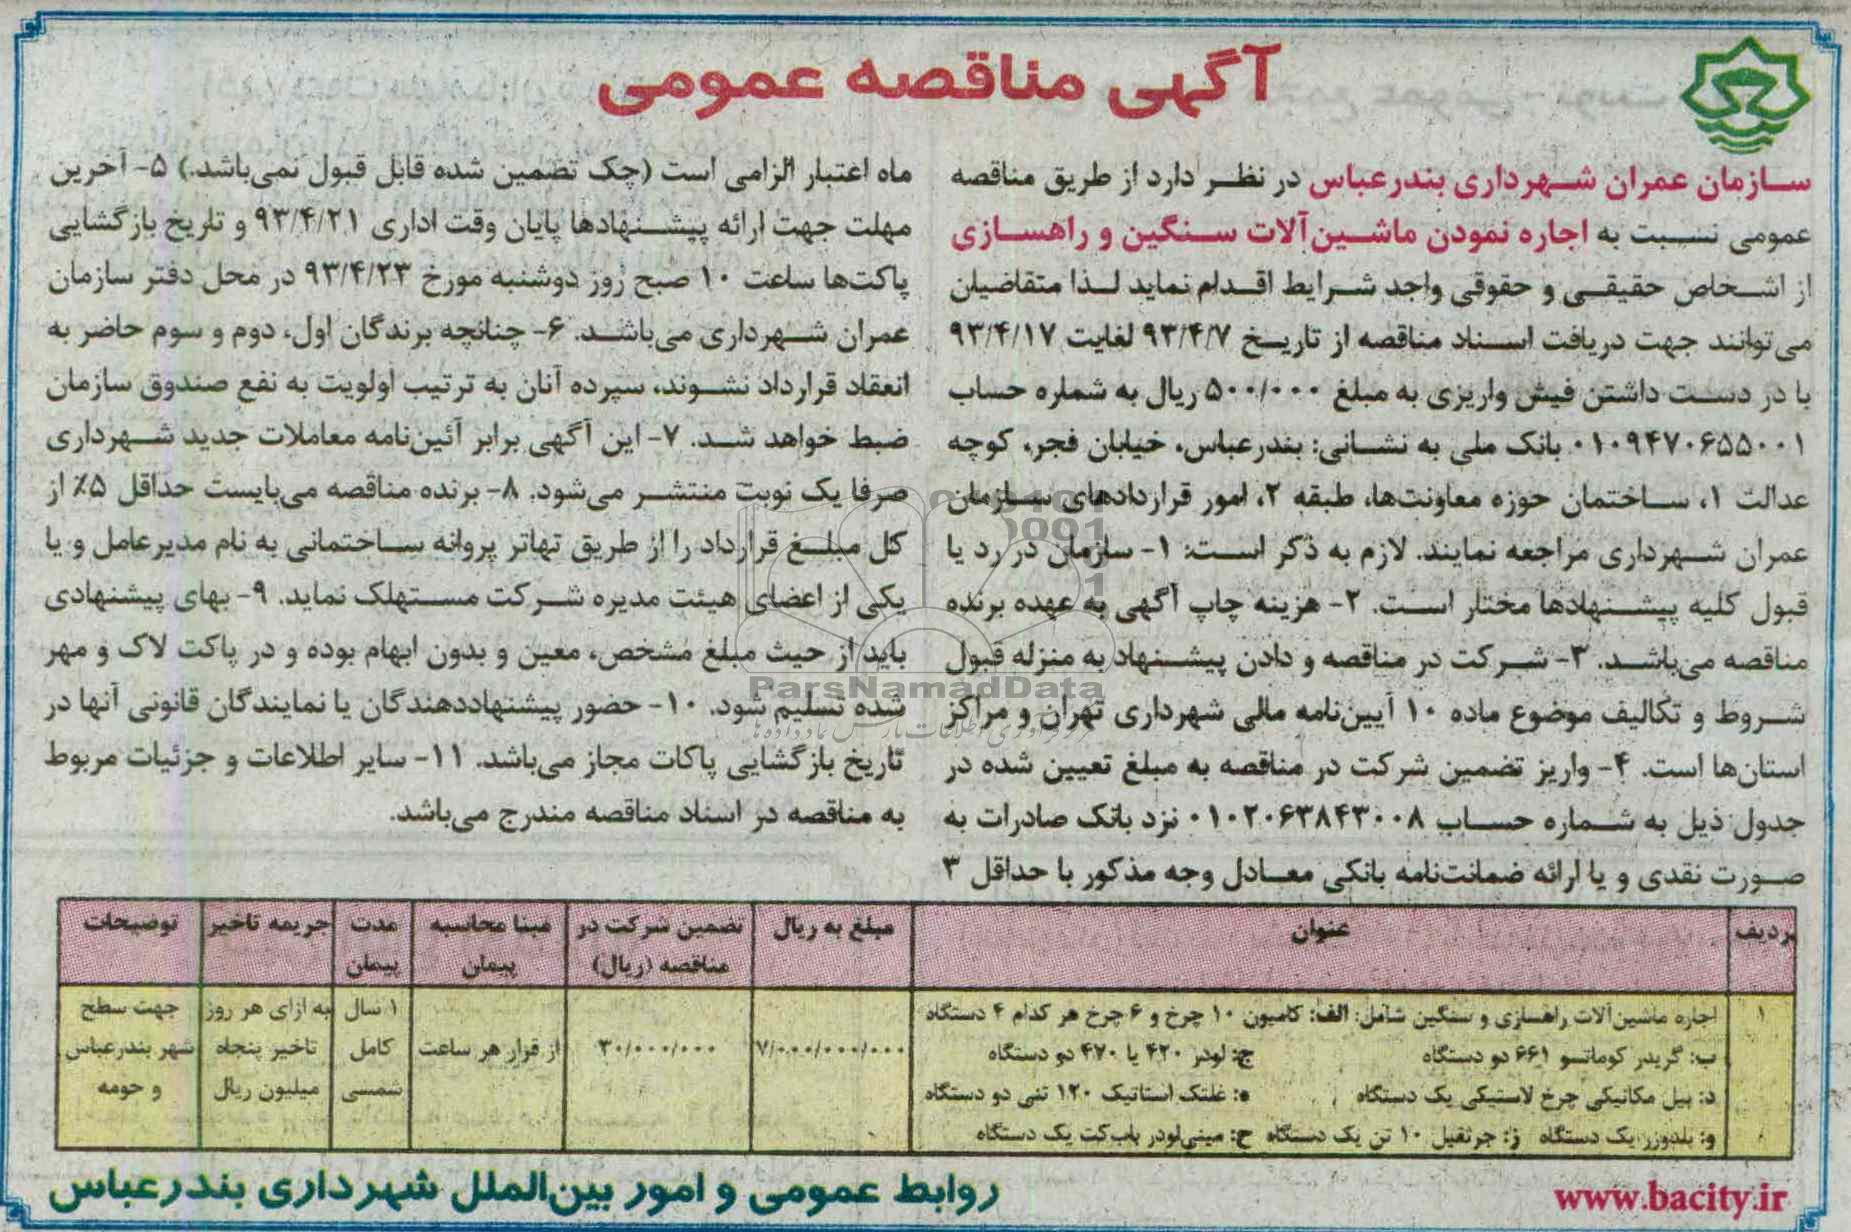 آگهی مناقصه عمومی
سازمان عمران شهرداری بندرعباس در نظر دارد از طریق مناقصه
عمومی نسبت به اجاره نمودن ماشین‌آلات سنگین و راهسازی
از اشخاص حقیقی و حقوقی واجد شرایط اقدام نماید لذا متقاضیان
می‌توانند جهت دریافت اسناد مناقصه از تاریخ ۹۳/۴/۷ لغایت ۹۳/۴/۱۷
با در دست داشتن فیش واریزی به مبلغ ۵۰۰/۰۰۰ ریال به شماره حساب
۰۱۰۹۴۷۰۶۵۵۰۰۱ بانک ملی به نشانی: بندرعباس، خیابان فجر، کوچه
عدالت ۱، ساختمان حوزه معاونت‌ها، طبقه ۲، امور قراردادهای سازمان
عمران شهرداری مراجعه نمایند. لازم به ذکر است: ۱- سازمان در رد یا
قبول کلیه پیشنهادها مختار است. ۲- هزینه چاپ آگهی به عهده برنده
مناقصه می‌باشد. ۳- شرکت در مناقصه و دادن پیشنهاد به منزله قبول
شروط و تکالیف موضوع ماده ۱۰ آیین‌نامه مالی شهرداری تهران و مراکز
استان‌ها است. ۴- واریز تضمین شرکت در مناقصه به مبلغ تعیین شده در
جدول ذیل به شماره حساب ۰۱۰۲۰۶۳۸۴۳۰۰۸ نزد بانک صادرات به
صورت نقدی و یا ارائه ضمانت‌نامه بانکی معادل وجه مذکور با حداقل ۳
ماه اعتبار الزامی است (چک تضمین شده قابل قبول نمی‌باشد.) ۵- آخرین
مهلت جهت ارائه پیشنهادها پایان وقت اداری ۹۳/۴/۲۱ و تاریخ بازگشایی
پاکت‌ها ساعت ۱۰ صبح روز دوشنبه مورخ ۹۳/۴/۲۳ در محل دفتر سازمان
عمران شهرداری می‌باشد. ۶- چنانچه برندگان اول، دوم و سوم حاضر به
انعقاد قرارداد نشوند، سپرده آنان به ترتیب اولویت به نفع صندوق سازمان
ضبط خواهد شد. ۷- این آگهی برابر آئین‌نامه معاملات جدید شهرداری
صرفا یک نوبت منتشر می‌شود. ۸- برنده مناقصه می‌بایست حداقل ۵٪ از
کل مبلغ قرارداد را از طریق تهاتر پروانه ساختمانی به نام مدیرعامل و یا
یکی از اعضای هیئت مدیره شرکت مستهلک نماید. ۹- بهای پیشنهادی
باید از حیث مبلغ مشخص، معین و بدون ابهام بوده و در پاکت لاک و مهر
شده تسلیم شود. ۱۰- حضور پیشنهاددهندگان یا نمایندگان قانونی آنها در
تاریخ بازگشایی پاکات مجاز می‌باشد. ۱۱- سایر اطلاعات و جزئیات مربوط
به مناقصه در اسناد مناقصه مندرج می‌باشد.
ParsNamadData
ردیف عنوان مبلغ به ریال تضمین شرکت در مناقصه (ریال) مبنا محاسبه پیمان مدت پیمان جریمه تاخیر توضیحات
۱ اجاره ماشین‌آلات راهسازی و سنگین شامل: الف: کامیون ۱۰ چرخ و ۶ چرخ هر کدام ۴ دستگاه
ب: گریدر کوماتسو ۶۶۱ دو دستگاه ج: لودر ۴۲۰ یا ۴۷۰ دو دستگاه
د: بیل مکانیکی چرخ لاستیکی یک دستگاه ه: غلتک استاتیک ۱۲۰ تنی دو دستگاه
و: بلدوزر یک دستگاه ز: جرثقیل ۱۰ تن یک دستگاه ح: مینی‌لودر باب‌کت یک دستگاه
۷/۰۰۰/۰۰۰/۰۰۰
۳۰/۰۰۰/۰۰۰
از قرار هر ساعت
۱ سال
کامل
شمسی
به ازای هر روز
تاخیر پنجاه
میلیون ریال
جهت سطح
شهر بندرعباس
و حومه
www.bacity.ir
روابط عمومی و امور بین‌الملل شهرداری بندرعباس